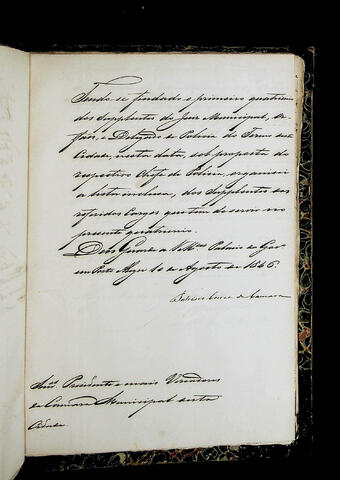 Tendo se findado o primeiro quatrienio
dos Supplentes do Juiz Municipal, Or-
fãos, e Delegado de Policia do Termo desta
Cidade, nesta data, sob proposta do
respectivo Chefe de Policia, organisei
a lista inclusa, dos Supplentes aos
referidos Cargos que tem de servir no
presente quatrienio.
Deos Guarde a VMces Palacio do Gov.
em Porto Alegre 10 de Agosto de 1846.
Patricio Correa da Camara
Snrs. Presidente e mais Vereadores
da Camara Municipal desta
Cidade